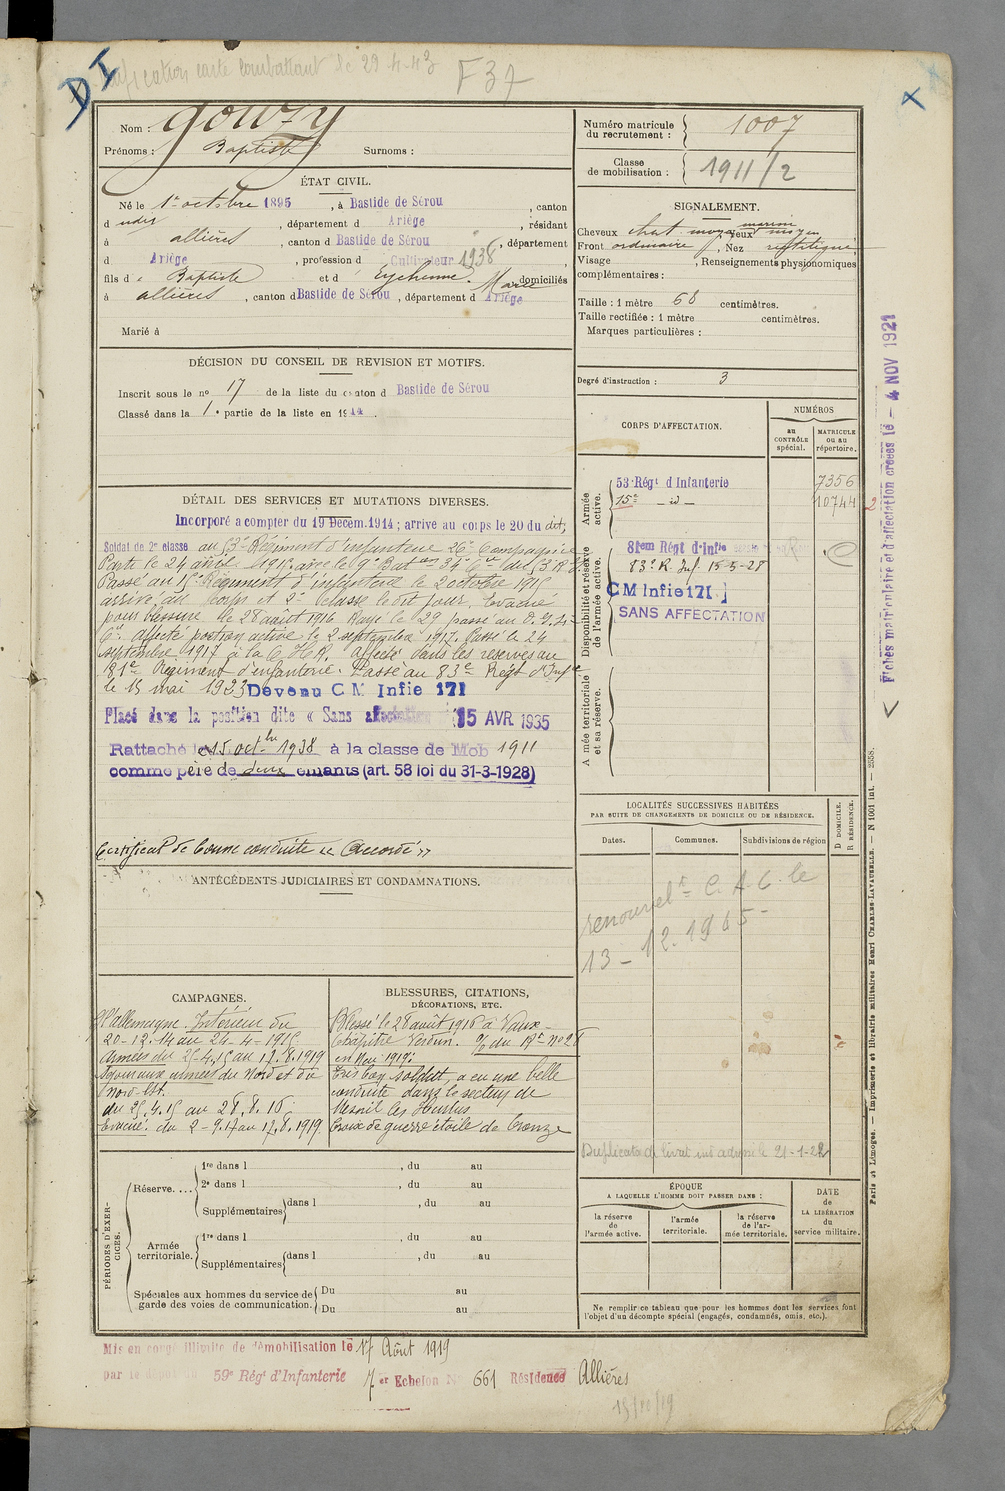 DI
carte combattant de 29-4-43 F37
Nom : Gouzy
Prénoms : Baptiste Surnoms :
Numéro matricule du recrutement : 1007
Classe de mobilisation : 1911/2
ÉTAT CIVIL.
Né le 1er octobre 1895, à Bastide de Sérou, canton
d udit, département d Ariège, résidant
à allières, canton d Bastide de Sérou, département
d Ariège, profession d Cultivateur 1938,
fils d e Baptiste et d' Eychenne Marie domiciliés
à allières, canton d Bastide de Sérou, département d Ariège
Marié à
SIGNALEMENT.
Cheveux chat. moyen Yeux marron moyen
Front ordinaire, Nez rectiligne
Visage , Renseignements physionomiques
complémentaires :
Taille : 1 mètre 68 centimètres.
Taille rectifiée : 1 mètre centimètres.
Marques particulières :
Degré d'instruction : 3
DÉCISION DU CONSEIL DE REVISION ET MOTIFS.
Inscrit sous le no 17 de la liste du canton d Bastide de Sérou
Classé dans la 1e partie de la liste en 1914.
DÉTAIL DES SERVICES ET MUTATIONS DIVERSES.
Incorporé a compter du 19 Décem. 1914 ; arrive au corps le 20 du dit,
Soldat de 2e classe au 53e Régiment d'infanterie 26e Compagnie
Parti le 24 avril 1915 avec le 9e Baton 34e Cie du 53e R.I.
Passé au 15e Régiment d'infanterie le 2 octobre 1915
arrivé au corps et 2e classe le dit jour. Evacué
pour blessure le 28 août 1916. Rayé le 29 passé au D.
Cie. Affecté position active le 2 septembre 1917. Passé le 24
septembre 1917 à la C.H.R. Affecté dans les reserves au
81e Régiment d'infanterie. Passé au 83e Régt d'Infie
le 15 mai 1923 Devenu C M Infie 171
Placé dans la position dite « Sans affectation » 15 AVR 1935
Rattaché le 15 octbre 1938 à la classe de Mob 1911
comme père de deux enfants (art. 58 loi du 31-3-1928)
Certificat de bonne conduite « Accordé »
CORPS D'AFFECTATION.
NUMÉROS
au CONTRÔLE spécial.
MATRICULE ou au répertoire.
Armée active.
53e Régt d'Infanterie 7356
15e - id - 10744 2
Disponibilité et réserve de l'armée active.
81em Régt d'Infie
83e R. Inf. 15-5-28
CM Infie 171
SANS AFFECTATION
Armée territoriale et sa réserve.
Fiches matriculaire et d'affectation créées le - 4 NOV 1921
LOCALITÉS SUCCESSIVES HABITÉES
PAR SUITE DE CHANGEMENTS DE DOMICILE OU DE RÉSIDENCE.
Dates. Communes. Subdivisions de région
D DOMICILE. R RÉSIDENCE.
renouvelt C.A.C. le
13-12-1965
Duplicata de livret ind adressé le 21-1-22
ANTÉCÉDENTS JUDICIAIRES ET CONDAMNATIONS.
CAMPAGNES.
d'allemagne. Intérieur du
20-12.14 au 24-4-1915
Armées du 25-4.15 au 17.8.1919
Savoir aux armées du Nord et du
Nord-Est.
du 25.4.15 au 28.8.16
Evacué. du 2-9.17 au 17.8.1919.
BLESSURES, CITATIONS,
DÉCORATIONS, ETC.
Blessé le 28 août 1916 à Vaux-
Chapitre Verdun. O/ du Rt No 28
en Mai 1919:
Très bon soldat, a eu une belle
conduite dans le secteur de
Mesnil les Hurlus
Croix de guerre étoile de bronze
PÉRIODES D'EXERCICES.
Réserve. ...
1re dans l , du au
2e dans l , du au
Supplémentaires dans l , du au
Armée territoriale.
1re dans l , du au
Supplémentaires dans l , du au
Spéciales aux hommes du service de garde des voies de communication.
Du au
Du au
ÉPOQUE
A LAQUELLE L'HOMME DOIT PASSER DANS :
la réserve de l'armée active.
l'armée territoriale.
la réserve de l'armée territoriale.
DATE de LA LIBÉRATION du service militaire.
Ne remplir ce tableau que pour les hommes dont les services font
l'objet d'un décompte spécial (engagés, condamnés, omis, etc.).
Paris et Limoges. — Imprimerie et librairie militaires Henri CHARLES-LAVAUZELLE. — N 1001 int. — 2558.
Mis en congé illimité de démobilisation le 17 Août 1919
par le dépôt du 59e Régt d'Infanterie 7er Echelon No 661 Résidence Allières
15/10/19